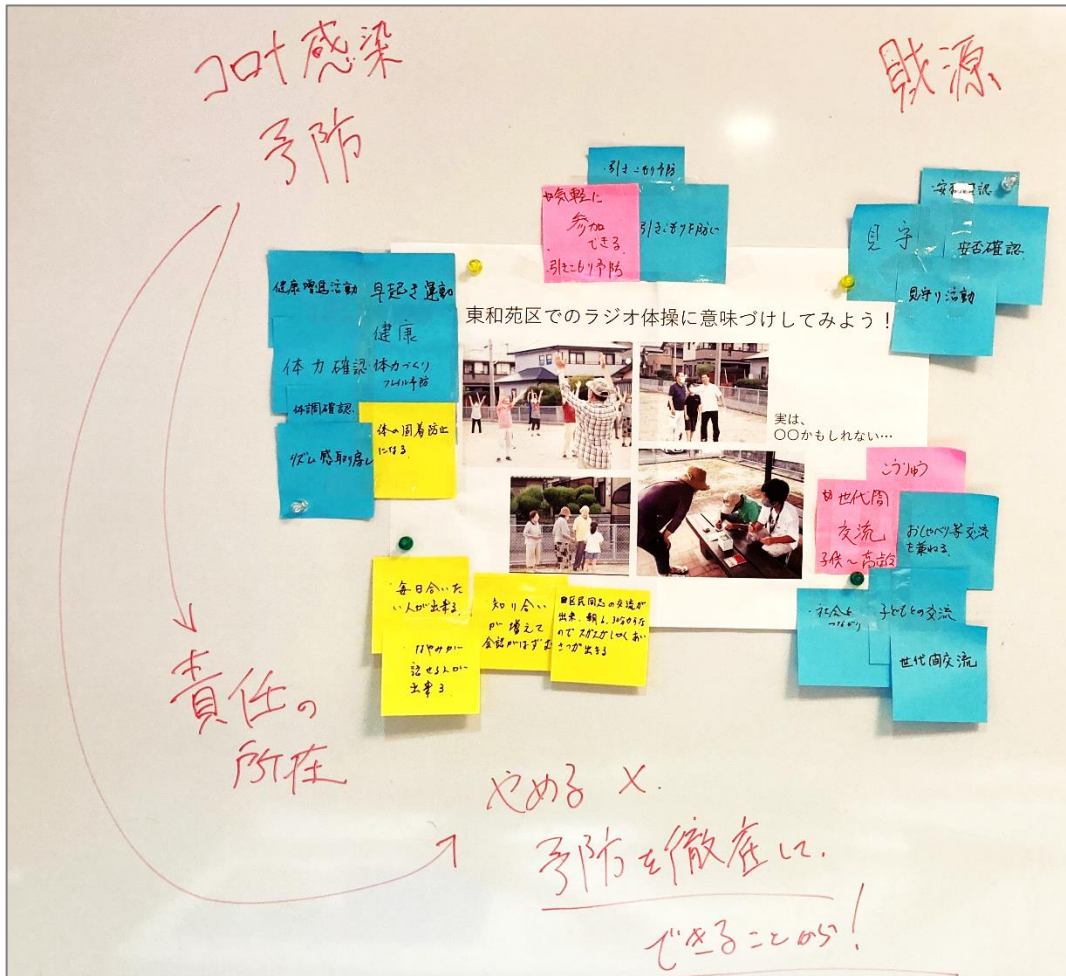 コロナ感染
予防
財源
引きこもり予防
気軽に
参加
できる
・引きこもり予防
引きこもりを防ぐ
安否確認
見守
安否確認
見守り活動
健康増進活動
早起き運動
健康
体力確認
体力づくり
フレイル予防
体調確認
体の固着防止
になる
リズム感取り戻し
東和苑区でのラジオ体操に意味づけしてみよう!
実は、
〇〇かもしれない…
こうりゅう
世代間
交流
子供~高齢
おしゃべり等交流
を兼ねる
・社会と
つながり
子どもとの交流
世代間交流
毎日合いた
い人が出来る
話せる人が
出来る
知り合い
が増えて
会話がはずむ
区民同志の交流が
出来、朝6、30分からな
のでスガスガしくあい
さつが出きる
責任の
所在
やめる ×
予防を徹底して、
できることから!